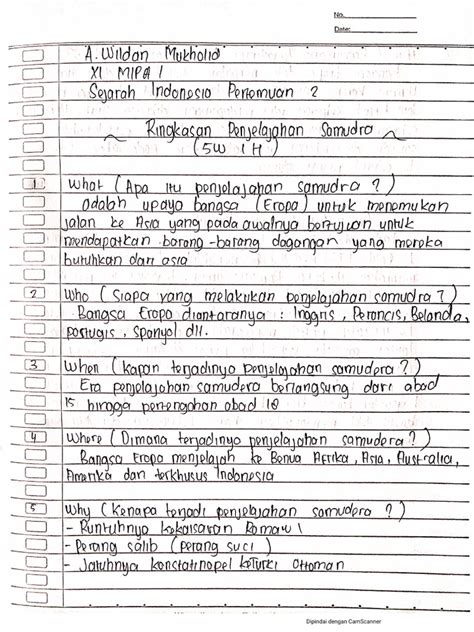 No.
Date:
A. Wildan Mukholid
XI MIPA 1
Sejarah Indonesia Pertemuan 2
~ Ringkasan Penjelajahan Samudra ~
(5W 1H)
1 What (Apa itu penjelajahan samudra ?)
adalah upaya bangsa (Eropa) untuk menemukan
jalan ke Asia yang pada awalnya bertujuan untuk
mendapatkan barang-barang dagangan yang mereka
butuhkan dari asia
2 Who (Siapa yang melakukan penjelajahan samudra ?)
Bangsa Eropa diantaranya : Inggris, Perancis, Belanda,
portugis, Spanyol dll.
3 When (Kapan terjadinya Penjelajahan samudera ?)
Era penjelajahan samudera berlangsung dari abad
15 hingga pertengahan abad 18
4 Where (Dimana terjadinya penjelajahan samudera ?)
Bangsa Eropa menjelajah ke Benua Afrika, Asia, Australia,
Amerika dan terkhusus Indonesia
5 Why (Kenapa terjadi penjelajahan samudera ?)
- Runtuhnya kekaisaran Romawi
- Perang salib (perang suci)
- Jatuhnya konstatinopel keturki Ottoman
Dipindai dengan CamScanner